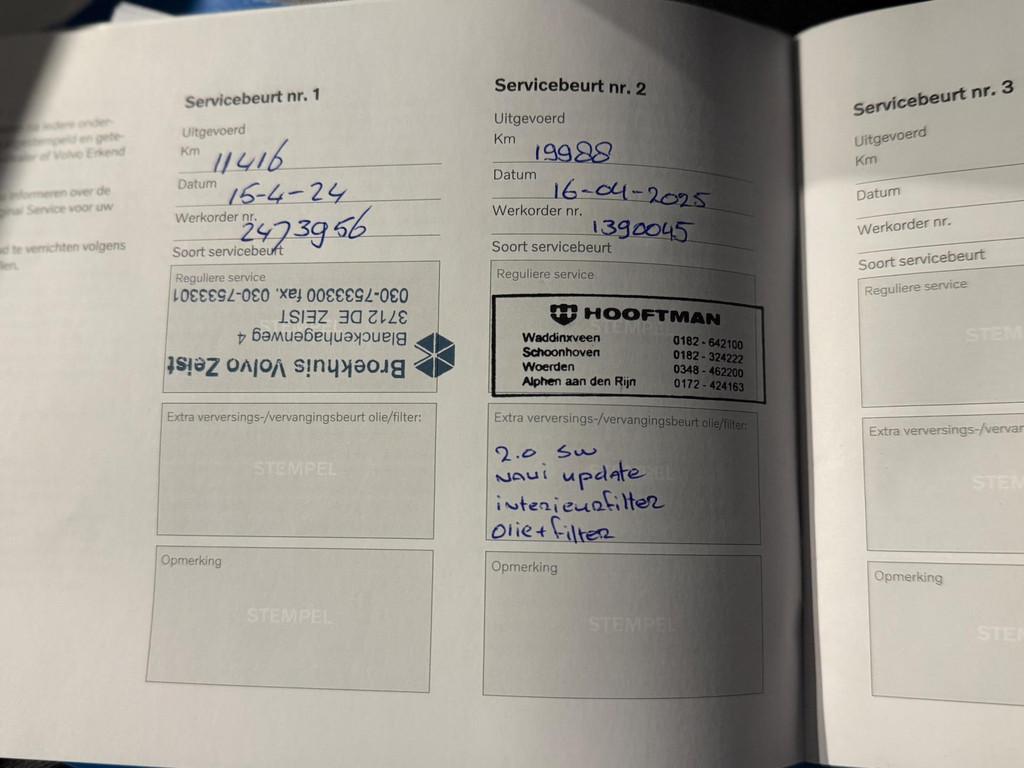 iedere onder-
estempeld en gete-
of Volvo Erkend
informeren over de
Service voor uw
te verrichten volgens
Servicebeurt nr. 1
Uitgevoerd
Km 11416
Datum 15-4-24
Werkorder nr. 2473956
Soort servicebeurt
Reguliere service
Broekhuis Volvo Zeist
Blanckenhagenweg 4
3712 DE ZEIST
030-7533300 fax. 030-7533301
Extra verversings-/vervangingsbeurt olie/filter:
STEMPEL
Opmerking
STEMPEL
Servicebeurt nr. 2
Uitgevoerd
Km 19988
Datum 16-04-2025
Werkorder nr. 1390045
Soort servicebeurt
Reguliere service
STEMPEL
HOOFTMAN
Waddinxveen 0182 - 642100
Schoonhoven 0182 - 324222
Woerden 0348 - 462200
Alphen aan den Rijn 0172 - 424163
Extra verversings-/vervangingsbeurt olie/filter:
STEMPEL
2.0 SW
Navi update
interieurfilter
Olie + filter
Opmerking
STEMPEL
Servicebeurt nr. 3
Uitgevoerd
Km
Datum
Werkorder nr.
Soort servicebeurt
Reguliere service
STEM
Extra verversings-/vervar
STEM
Opmerking
STE